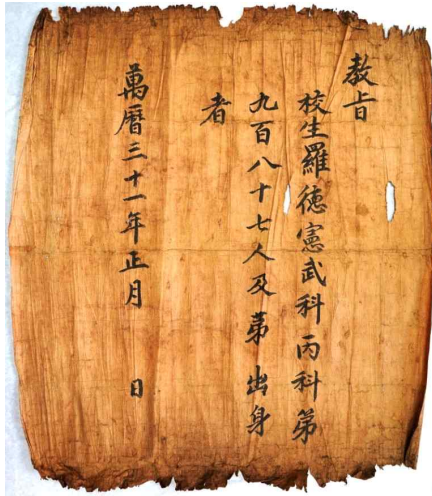 教旨
校生羅德憲武科丙科第
九百八十七人及第出身
者
萬曆三十一年正月 日